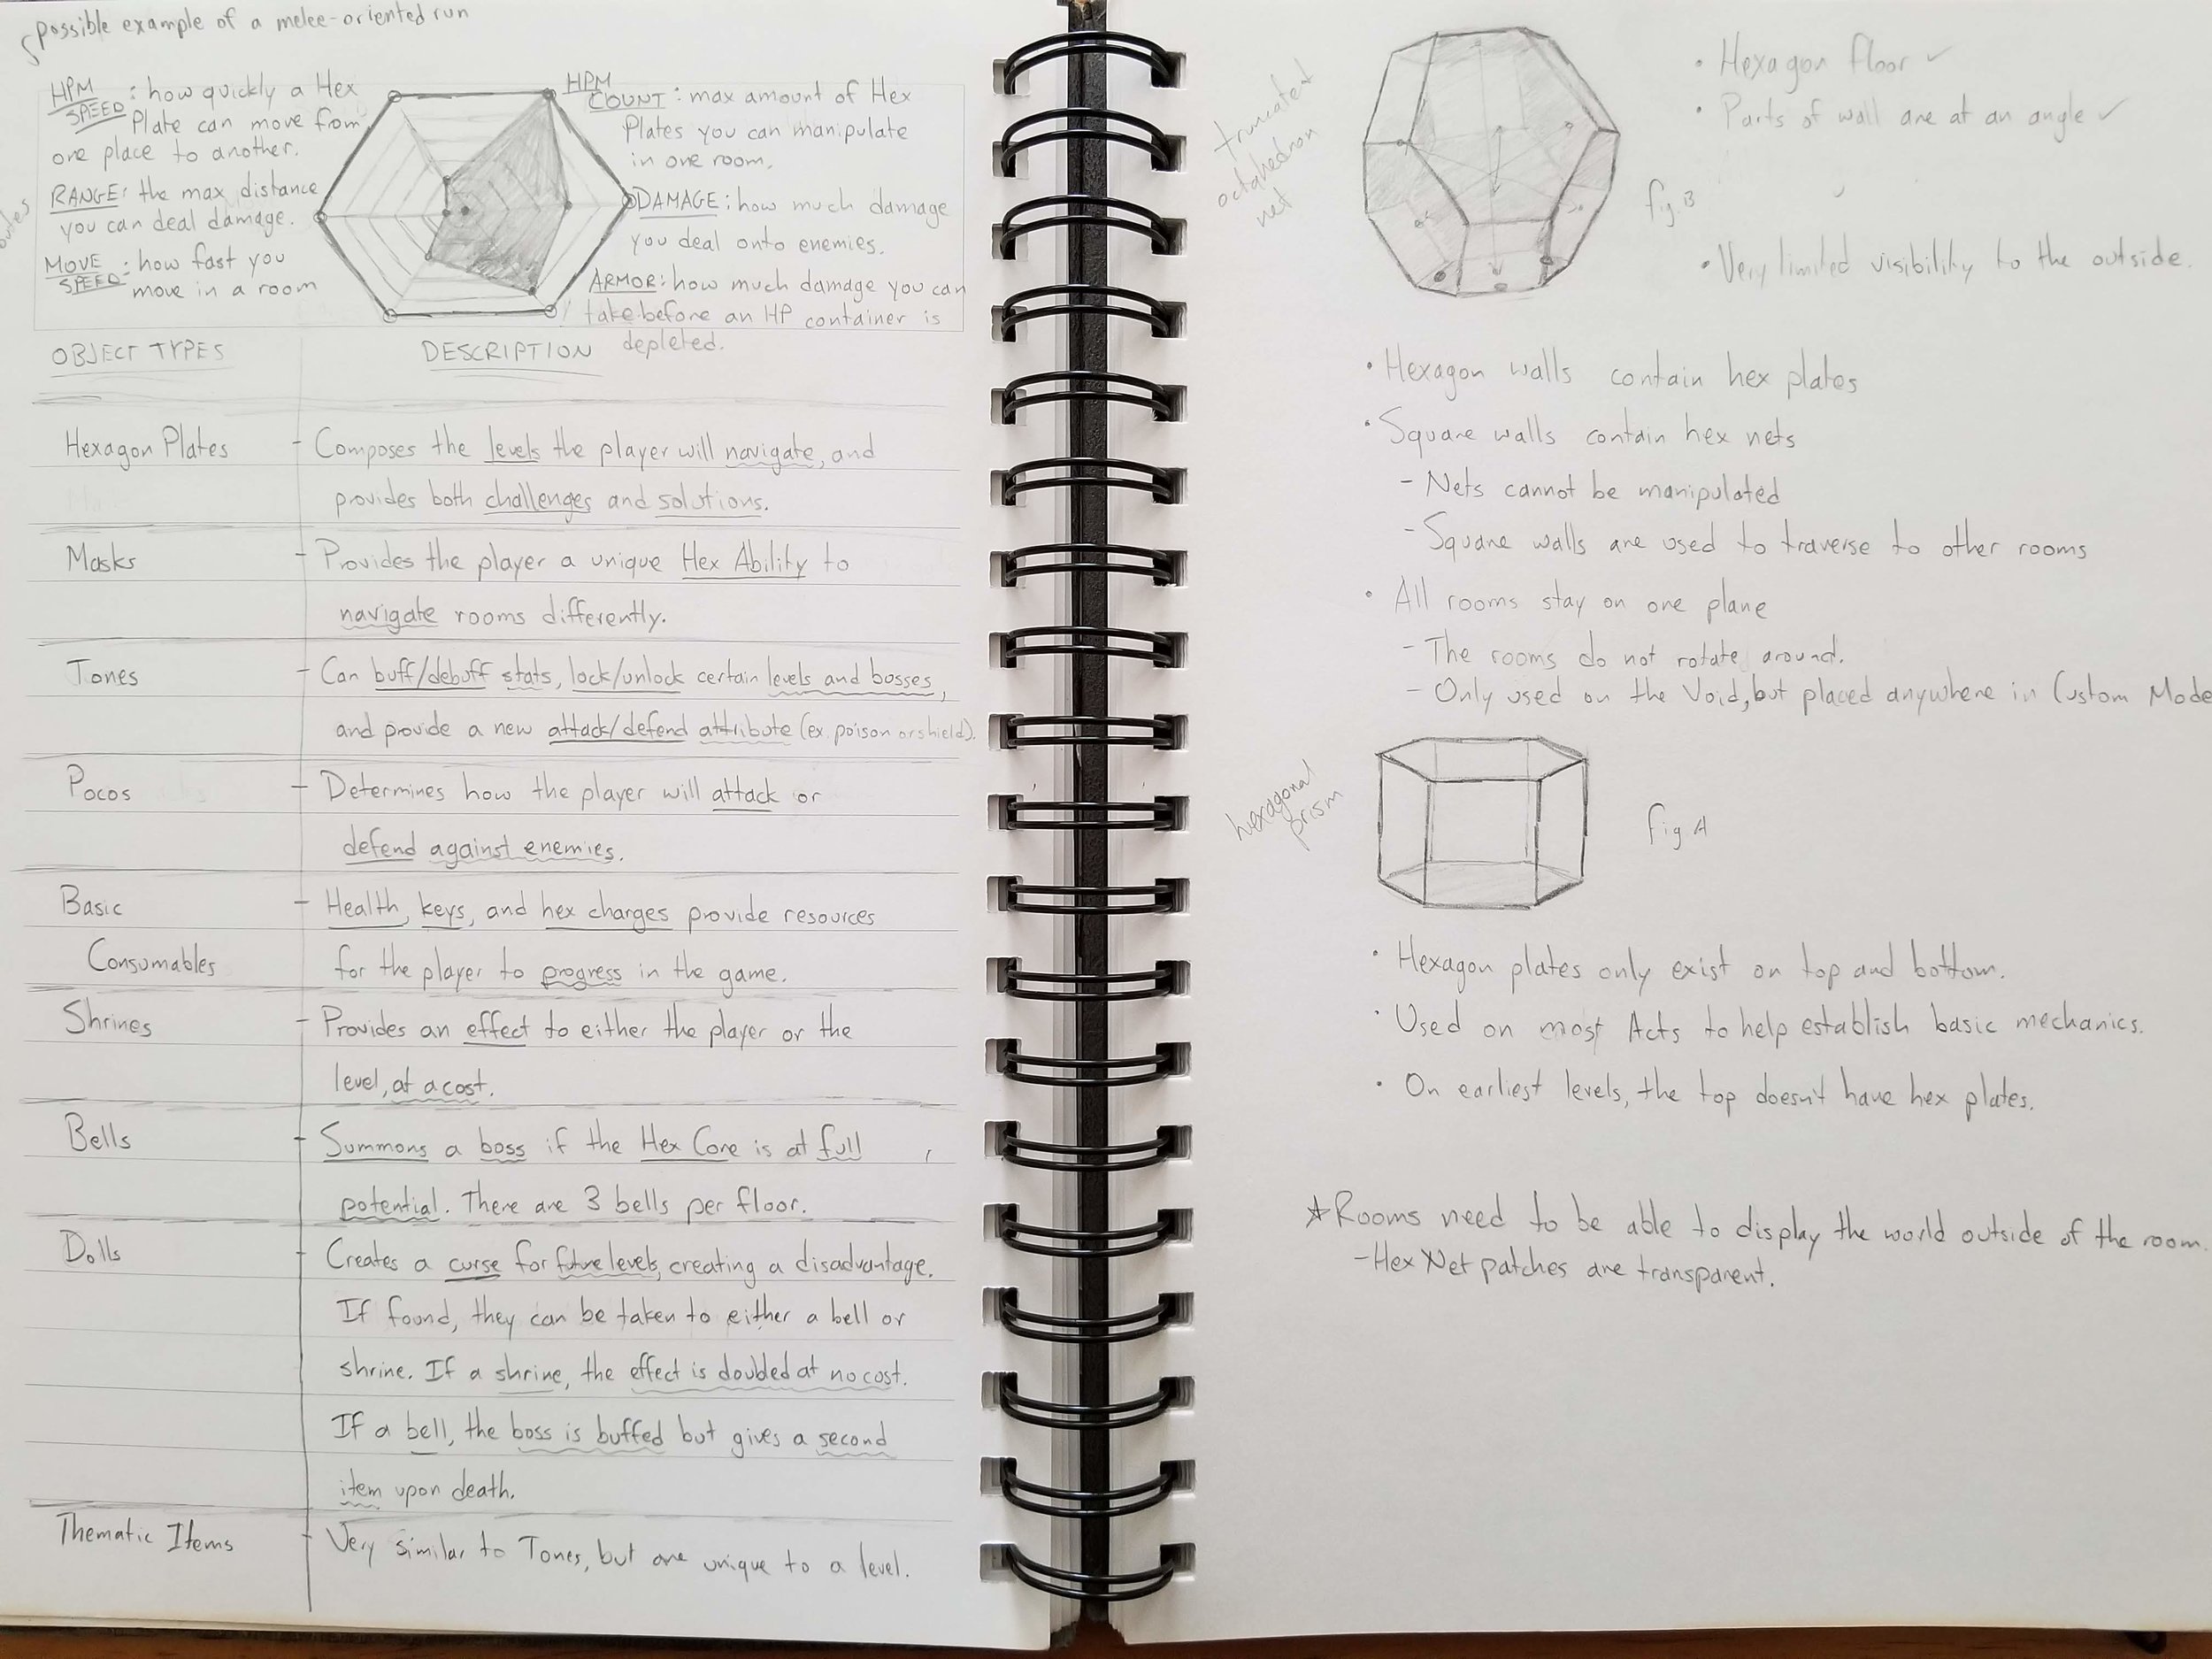 possible example of a melee-oriented run
HPM SPEED: how quickly a Hex
Plate can move from
one place to another.
RANGE: the max distance
you can deal damage.
MOVE SPEED: how fast you
move in a room
HPM COUNT: max amount of Hex
Plates you can manipulate
in one room.
DAMAGE: how much damage
you deal onto enemies.
ARMOR: how much damage you can
take before an HP container is
depleted.
OBJECT TYPES
DESCRIPTION
Hexagon Plates
- Composes the levels the player will navigate, and
provides both challenges and solutions.
Masks
- Provides the player a unique Hex Ability to
navigate rooms differently.
Tones
- Can buff/debuff stats, lock/unlock certain levels and bosses,
and provide a new attack/defend attribute (ex. poison or shield).
Pocos
- Determines how the player will attack or
defend against enemies.
Basic
Consumables
- Health, keys, and hex charges provide resources
for the player to progress in the game.
Shrines
- Provides an effect to either the player or the
level, at a cost.
Bells
- Summons a boss if the Hex Core is at full
potential. There are 3 bells per floor.
Dolls
- Creates a curse for future levels, creating a disadvantage.
If found, they can be taken to either a bell or
shrine. If a shrine, the effect is doubled at no cost.
If a bell, the boss is buffed but gives a second
item upon death.
Thematic Items
- Very similar to Tones, but are unique to a level.
truncated
octahedron
net
fig. B
• Hexagon floor ✓
• Parts of wall are at an angle ✓
• Very limited visibility to the outside.
• Hexagon walls contain hex plates
• Square walls contain hex nets
- Nets cannot be manipulated
- Square walls are used to traverse to other rooms
• All rooms stay on one plane
- The rooms do not rotate around.
- Only used on the Void, but placed anywhere in Custom Mode
hexagonal
prism
fig A
• Hexagon plates only exist on top and bottom.
• Used on most Acts to help establish basic mechanics.
• On earliest levels, the top doesn't have hex plates.
☆ Rooms need to be able to display the world outside of the room.
- Hex Net patches are transparent.